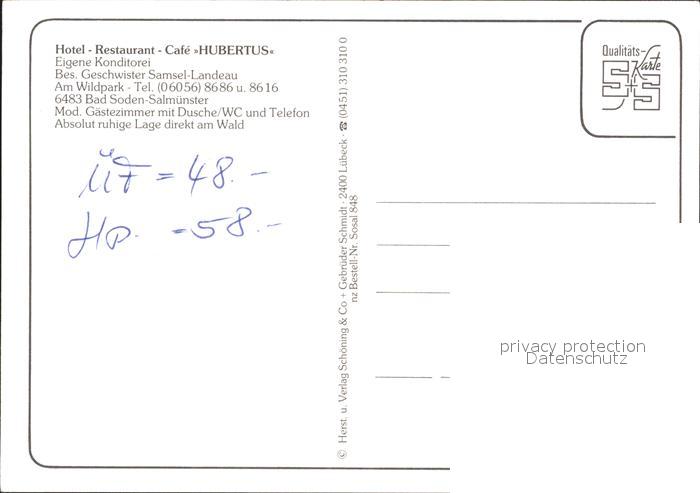 Hotel - Restaurant - Café »HUBERTUS«
Eigene Konditorei
Bes. Geschwister Samsel-Landeau
Am Wildpark - Tel. (06056) 8686 u. 8616
6483 Bad Soden-Salmünster
Mod. Gästezimmer mit Dusche/WC und Telefon
Absolut ruhige Lage direkt am Wald
ÜF = 48.-
Hp. = 58.-
© Herst. u. Verlag Schöning & Co + Gebrüder Schmidt · 2400 Lübeck · ☎ (0451) 310 310 0
nz Bestell-Nr. Sosal 848
Qualitäts-
Karte
S+S
privacy protection
Datenschutz